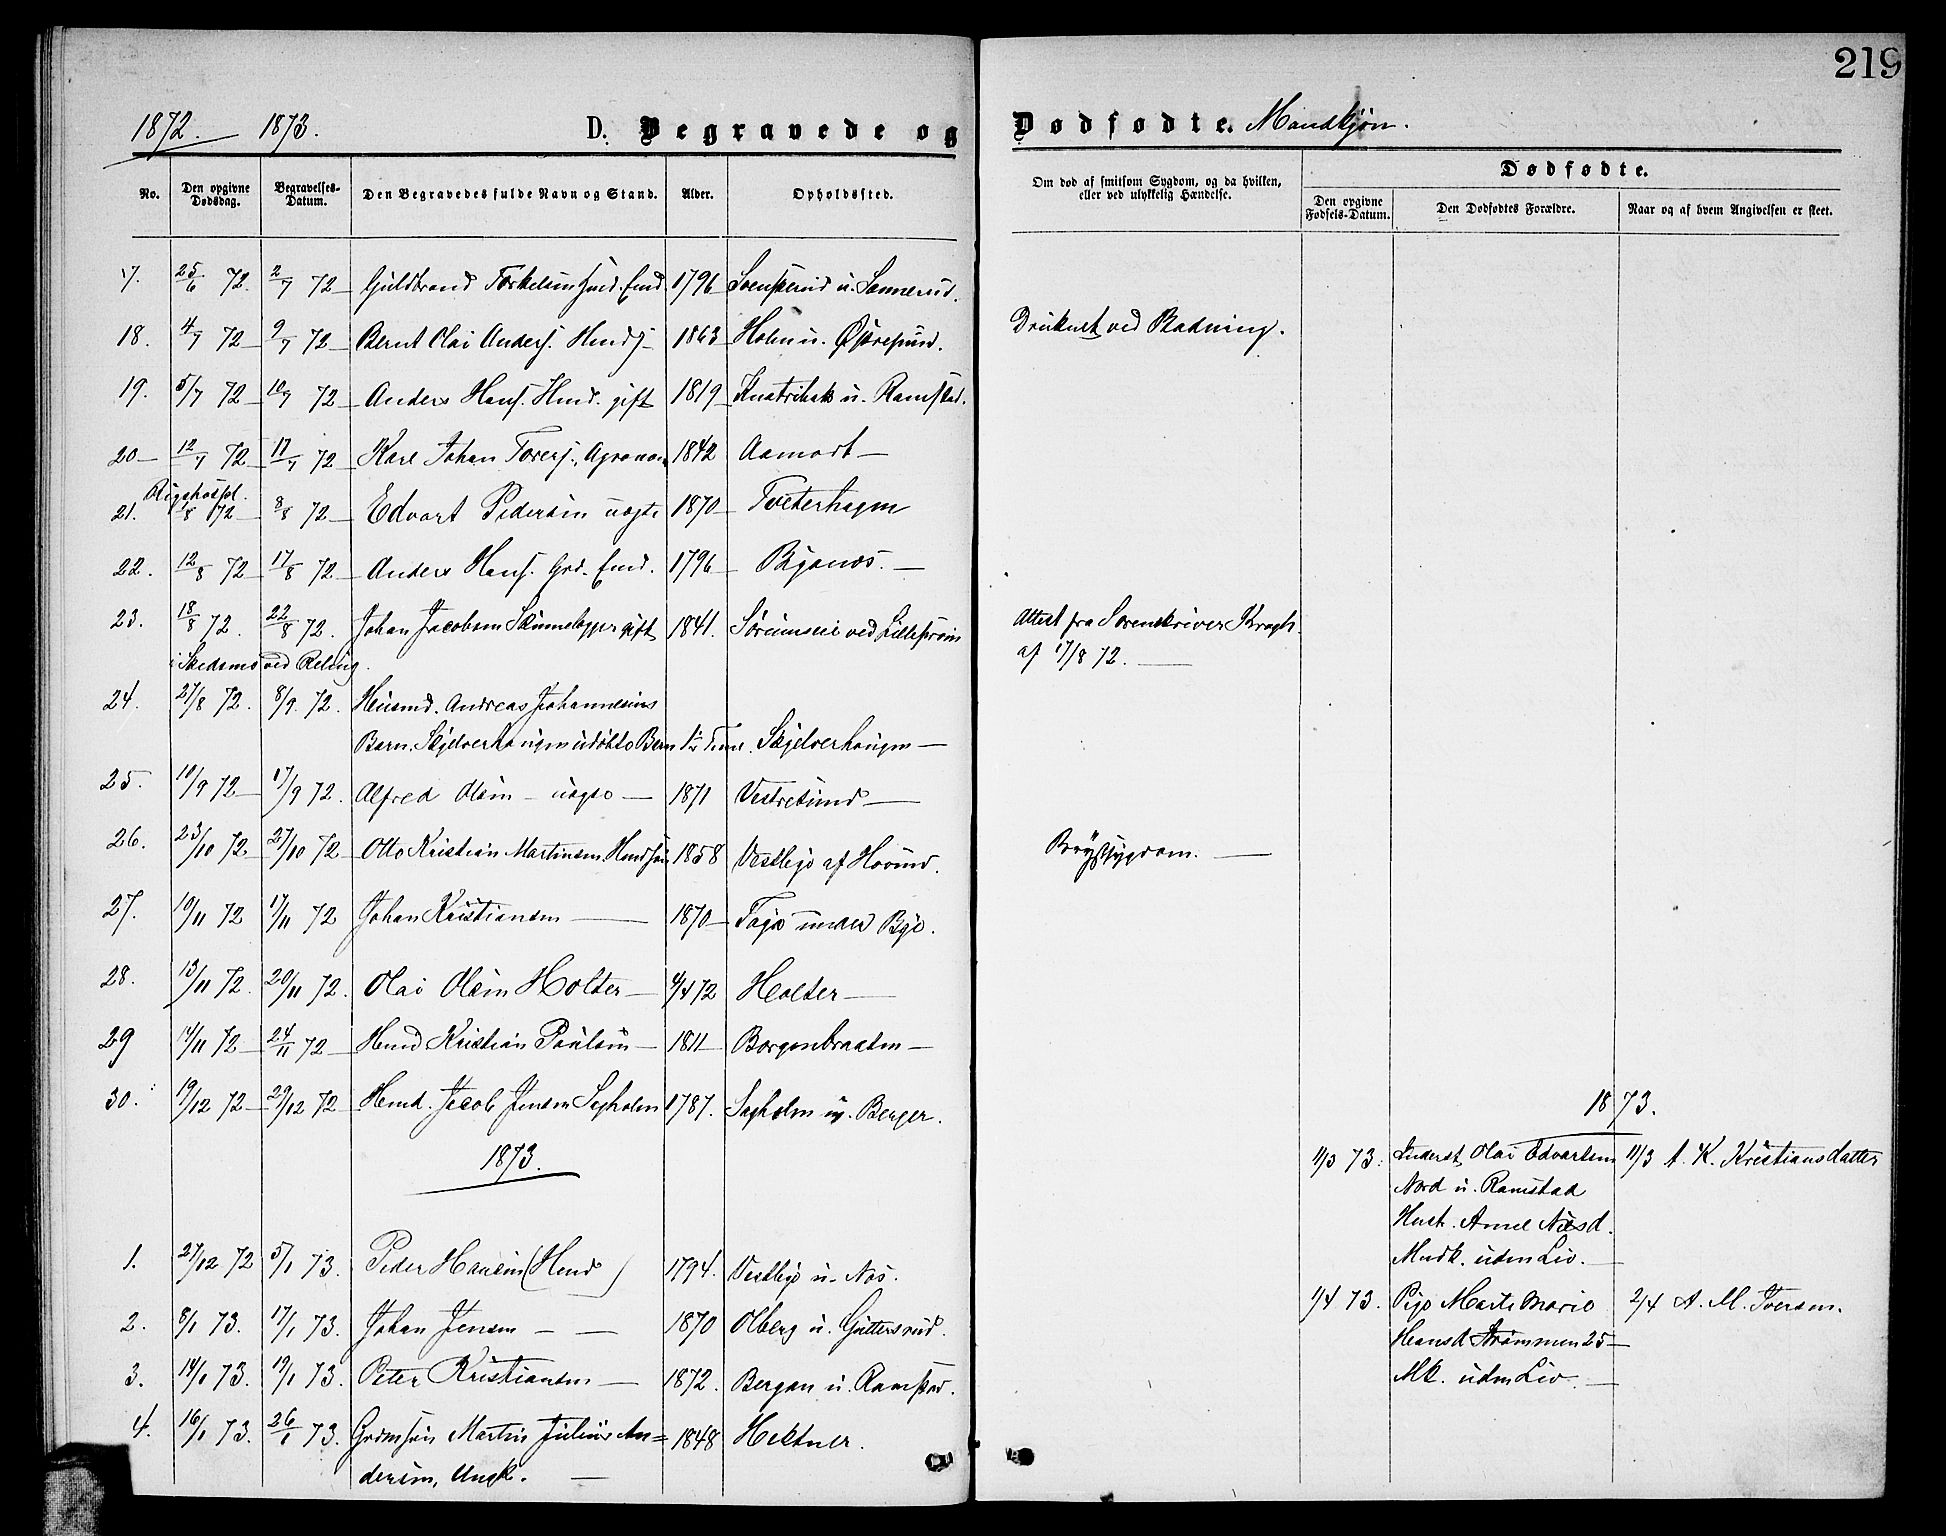 219
1872. 1873. D. Begravede og Dødfødte. Mandkjøn.
No. Den opgivne Dødsdag. Begravelses-Datum. Den Begravedes fulde Navn og Stand. Alder. Opholdssted. Om død af smitsom Sygdom, og da hvilken, eller ved ulykkelig Hændelse. Dødfødte.
Den opgivne Fødsels-Datum. Den Dødfødtes Forældre. Naar og af hvem Angivelsen er skeet.
17. 25/6 72. 2/7 72 Guldbrand Torkelsen 1796 u. Sannerud.
18. 4/7 72 9/7 72 Bernt Olai Anders. 1863 Holm u. Østresund. Druknet ved Badning.
19. 5/7 72 10/7 72 Anders Hans. Husd. gift 1819 u. Ramstad.
20 12/7 72 17/7 72 Karl Johan Torers., Agronom 1842 Aamodt
Rigshospl.
21. 1/8 72 8/8 72 Edvart Pedersen uægte 1870 Tveterhagen
22. 12/8 72 17/8 72 Anders Hans. Grd. 1796 Byanos.
23. 18/8 72. 22/8 72. Johan Jacobsen gift 1841. ved Lillestrøm Attest fra Sorenskriver Krogh
i Skedsmo ved Reling. af 17/8 72.
24. 27/8 72. 8/9 72. Husmd. Andreas Johannesens
Barn. Skjelverhougen udøbte Barn 1/2 Time. Skjelverhougen
25. 10/9 72 17/9 72. Alfred Olsen uægte 1871 Vestresund
26. 23/10 72 27/10 72 Otto Kristian Martinsen 1858 Vestbye af Hovind. Brystsygdom.
27. 10/11 72 17/11 72 Johan Kristiansen 1870 under Bye.
28. 13/11 72. 20/11 72. Olai Olsen Holter 4/4 72 Holter
29 14/11 72 24/11 72 Husd Kristian Poulsen 1811 Borgenbraaten
30. 19/12 72 29/12 72 Husd. Jacob Jensen Sagholm 1787. Sagholm u. Berger. 1873.
1873.
11/3 73. Inderst Olai Edvartsen 11/3 A. K. Kristiansdatter
Nord u. Ramstad
Hust. Anne Nilsd.
Mndk. uden Liv.
1. 27/12 72 5/1 73. Peder Hansen (Husd) 1794. Vestbye u. Nos.
1/4 73. Pige Marte Marie 2/4 A. M. Iversen.
2. 8/1 73. 17/1 73. Johan Jensen 1870 Olberg u. Guttersrud.
Hansd. Strømmen 25
3. 14/1 73. 19/1 73. Peter Kristiansen 1872. Bergan u. Ramstad.
Mk. uden Liv.
4. 16/1 73. 26/1 73. Grdmsøn Martin Julius An=
dersen, Ungk. 1848 Hektner.